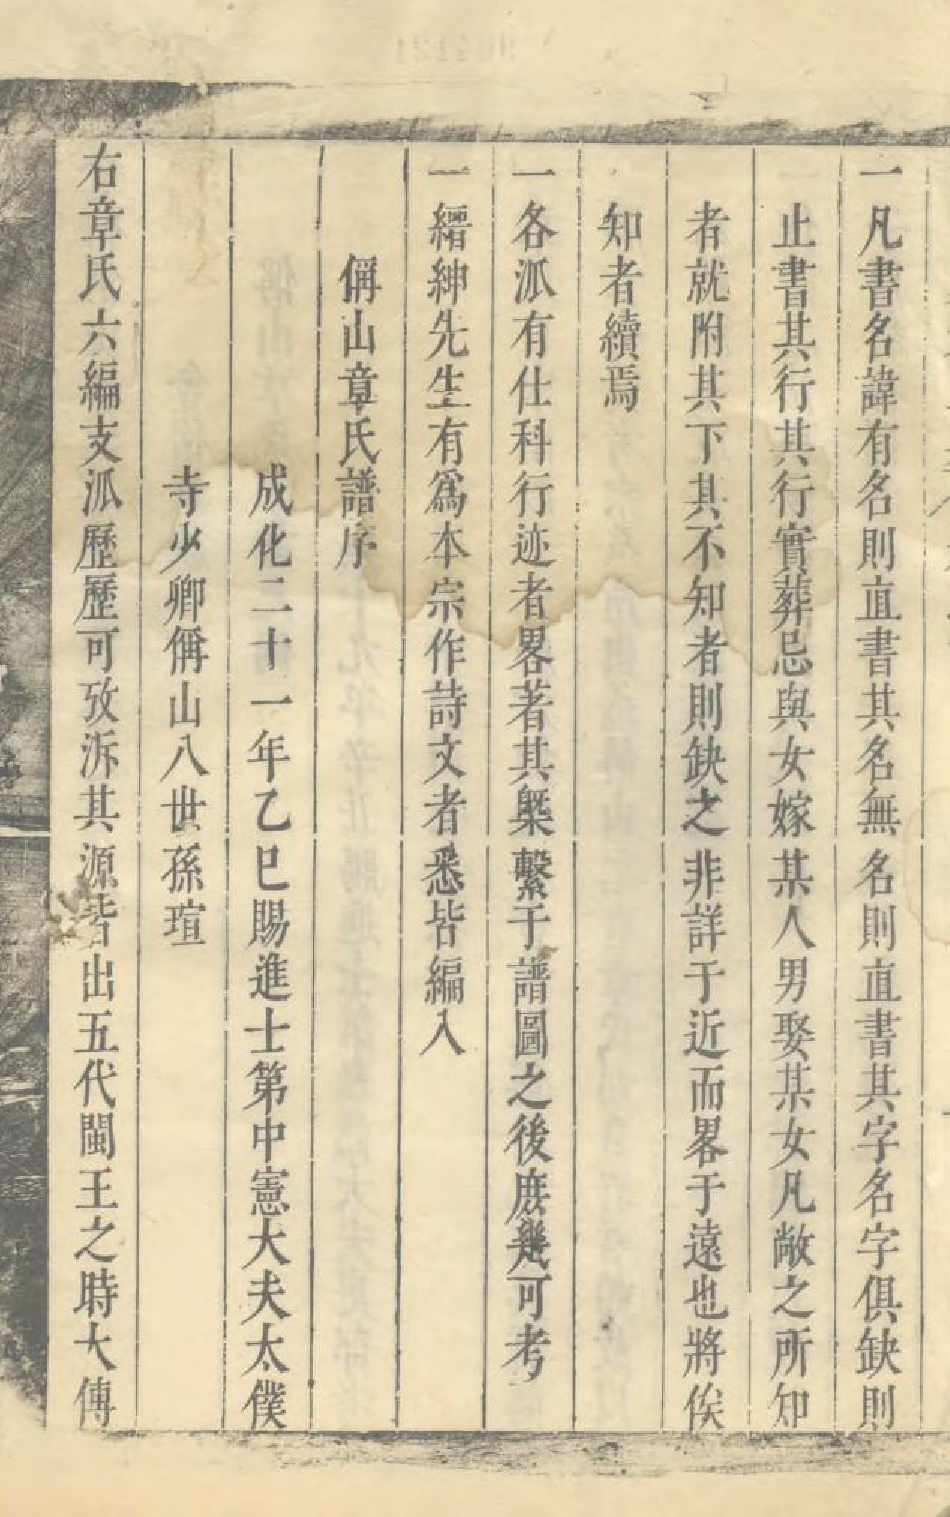 一凡書名諱有名則直書其名無名則直書其字名字俱缺則
止書其行其行實葬忌與女嫁某人男娶某女凡敞之所知
者就附其下其不知者則缺之非詳于近而畧于遠也將俟
知者續焉
一各派有仕科行迹者畧著其槩繫于譜圖之後庶幾可考
一縉紳先生有爲本宗作詩文者悉皆編入
偁山章氏譜序
成化二十一年乙巳賜進士第中憲大夫太僕
寺少卿偁山八世孫瑄
右章氏六編支派歷歷可攷泝其源皆出五代閩王之時大傳